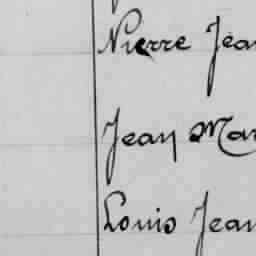 Pierre Jean
Jean Mar
Louis Jean